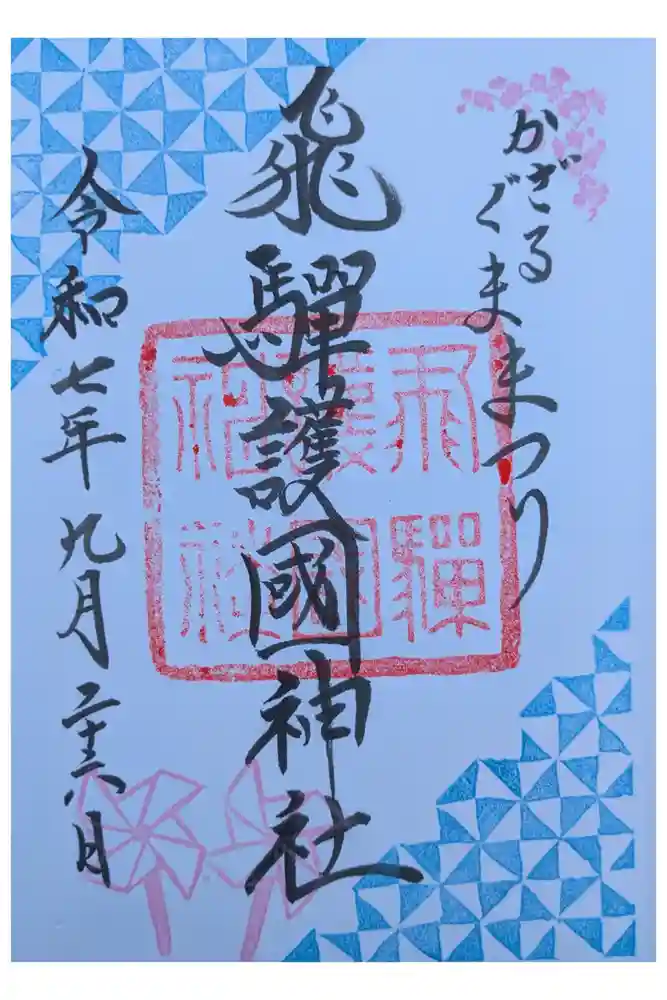 かざぐるままつり
飛驒護國神社
令和七年九月二十六日
飛驒
護國
神社